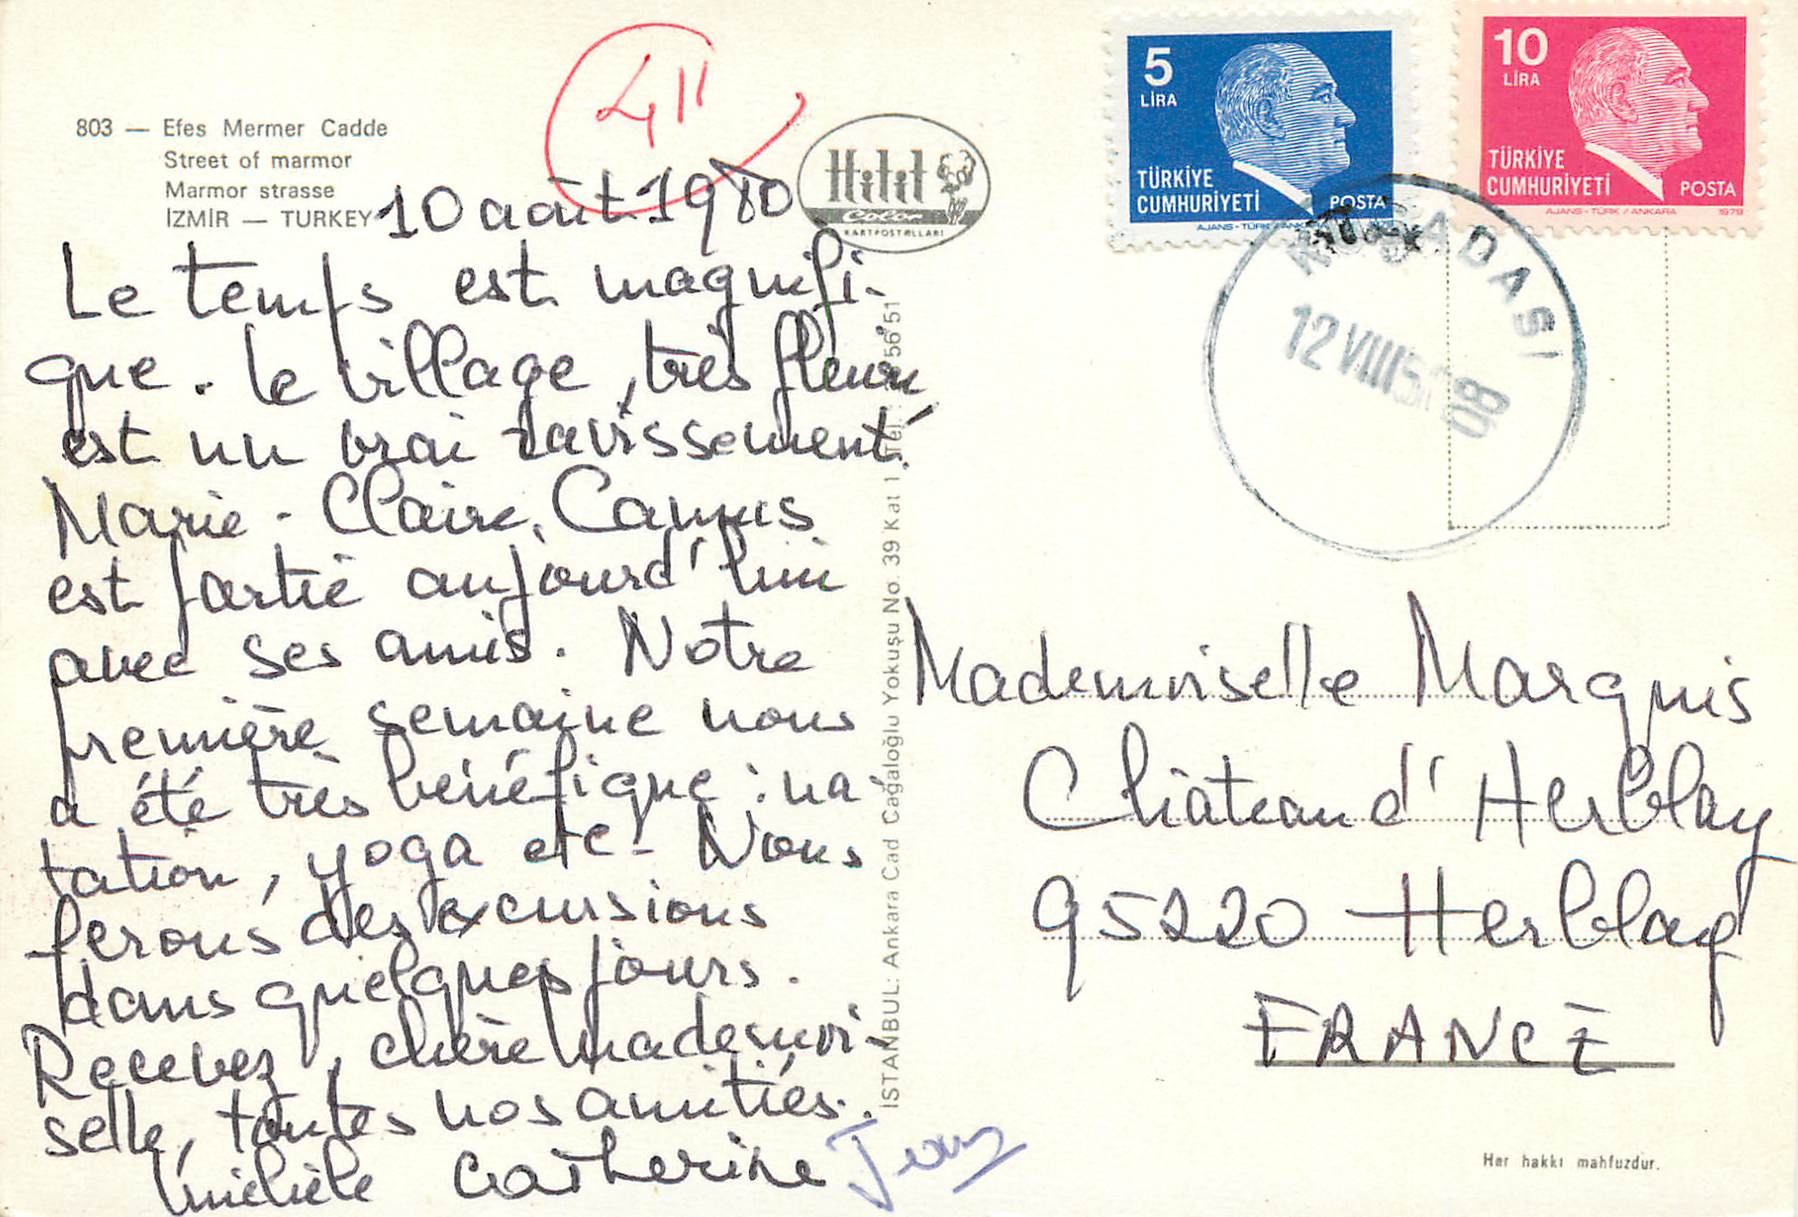 803 — Efes Mermer Cadde
Street of marmor
Marmor strasse
İZMİR — TURKEY
411
Hitit
Color
KARTPOSTALLARI
10 août 1980
Le temps est magnifi-
que. Le village, très fleuri
est un vrai ravissement.
Marie-Claire Camus
est partie aujourd'hui
avec ses amis. Notre
première semaine nous
a été très bénéfique : na-
tation, yoga etc - Nous
ferons des excursions
dans quelques jours.
Recevez, chère mademoi-
selle, toutes nos amitiés.
Michèle Catherine Jean
İSTANBUL: Ankara Cad Cağaloğlu Yokuşu No. 39 Kat 1 Tel: 56 51
5
LİRA
TÜRKİYE
CUMHURİYETİ
POSTA
AJANS - TÜRK / ANKARA
10
LİRA
TÜRKİYE
CUMHURİYETİ
POSTA
AJANS - TÜRK / ANKARA 1979
KUŞADASI
12 VIII 80
Mademoiselle Marquis
Château d'Herblay
95220 Herblay
FRANCE
Her hakkı mahfuzdur.